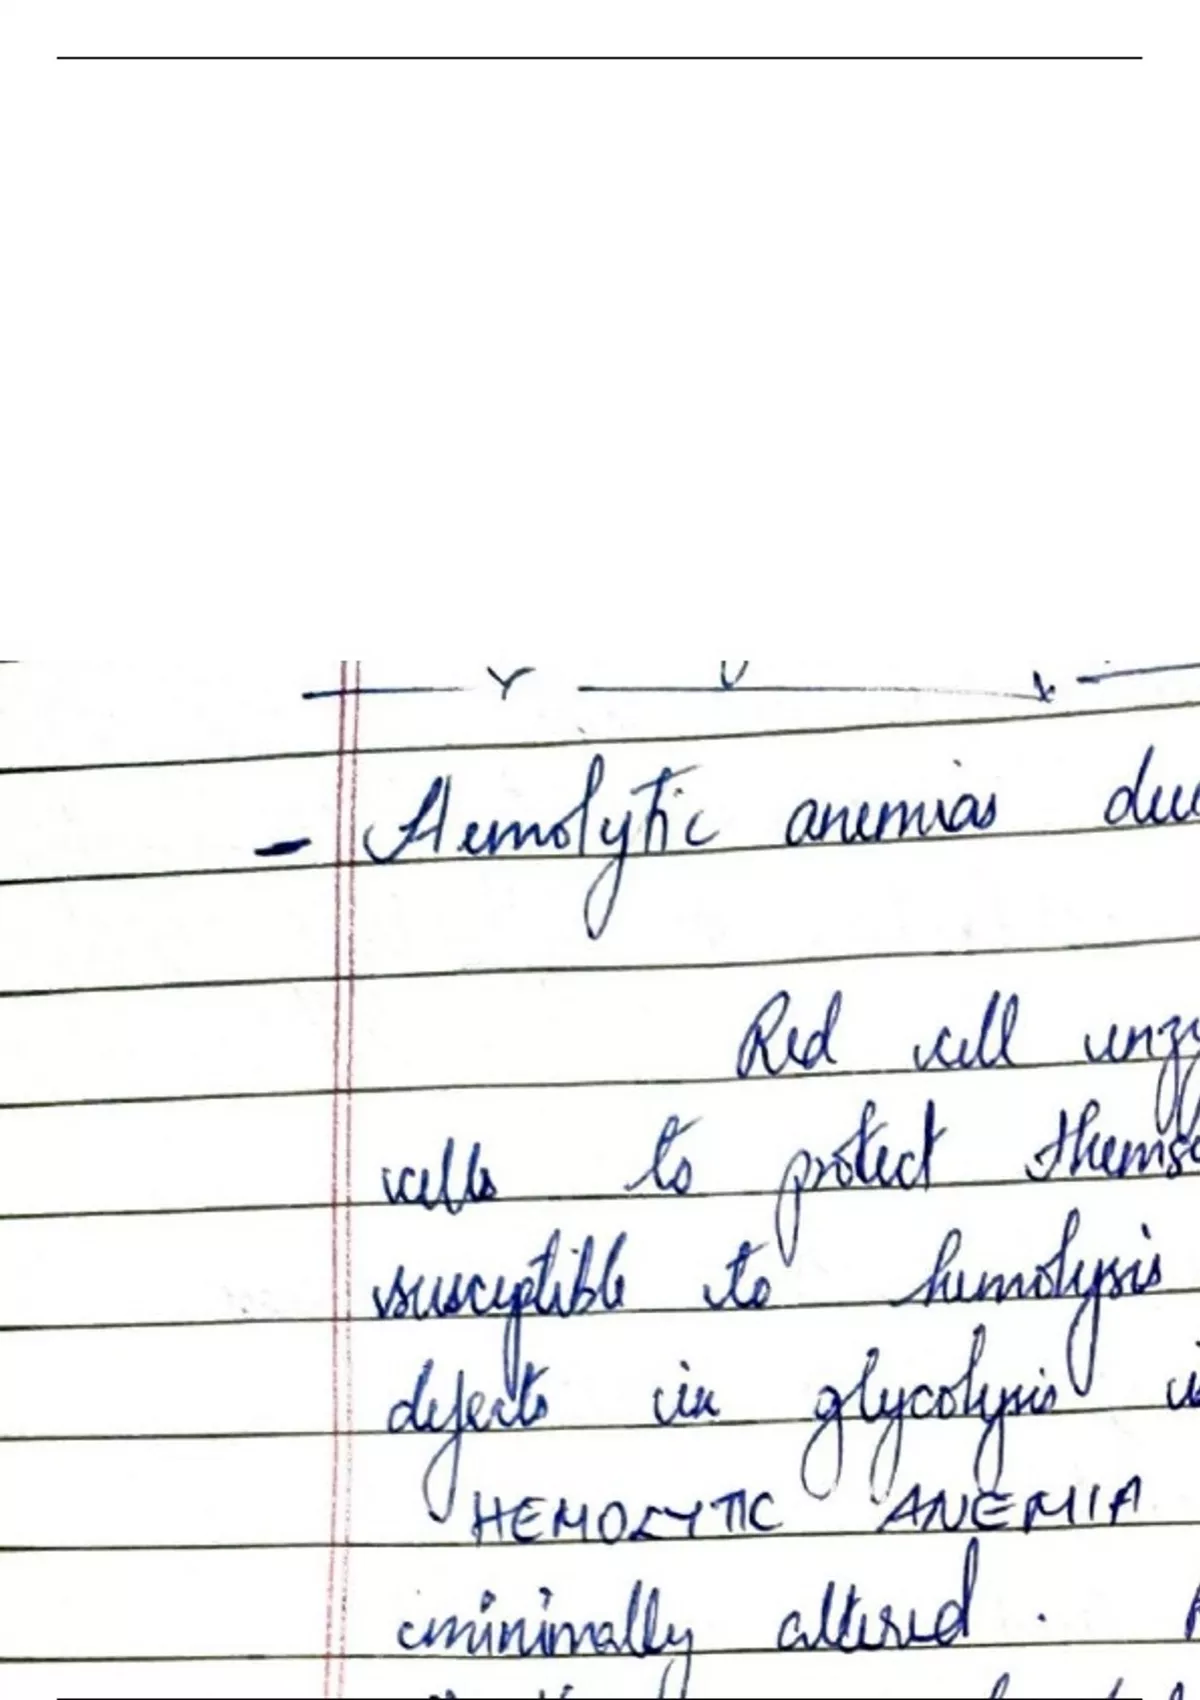 - Hemolytic anemias due
Red cell enzy
cells to protect themse
susceptible to hemolysis
defects in glycolysis
HEMOLYTIC ANEMIA
minimally altered.